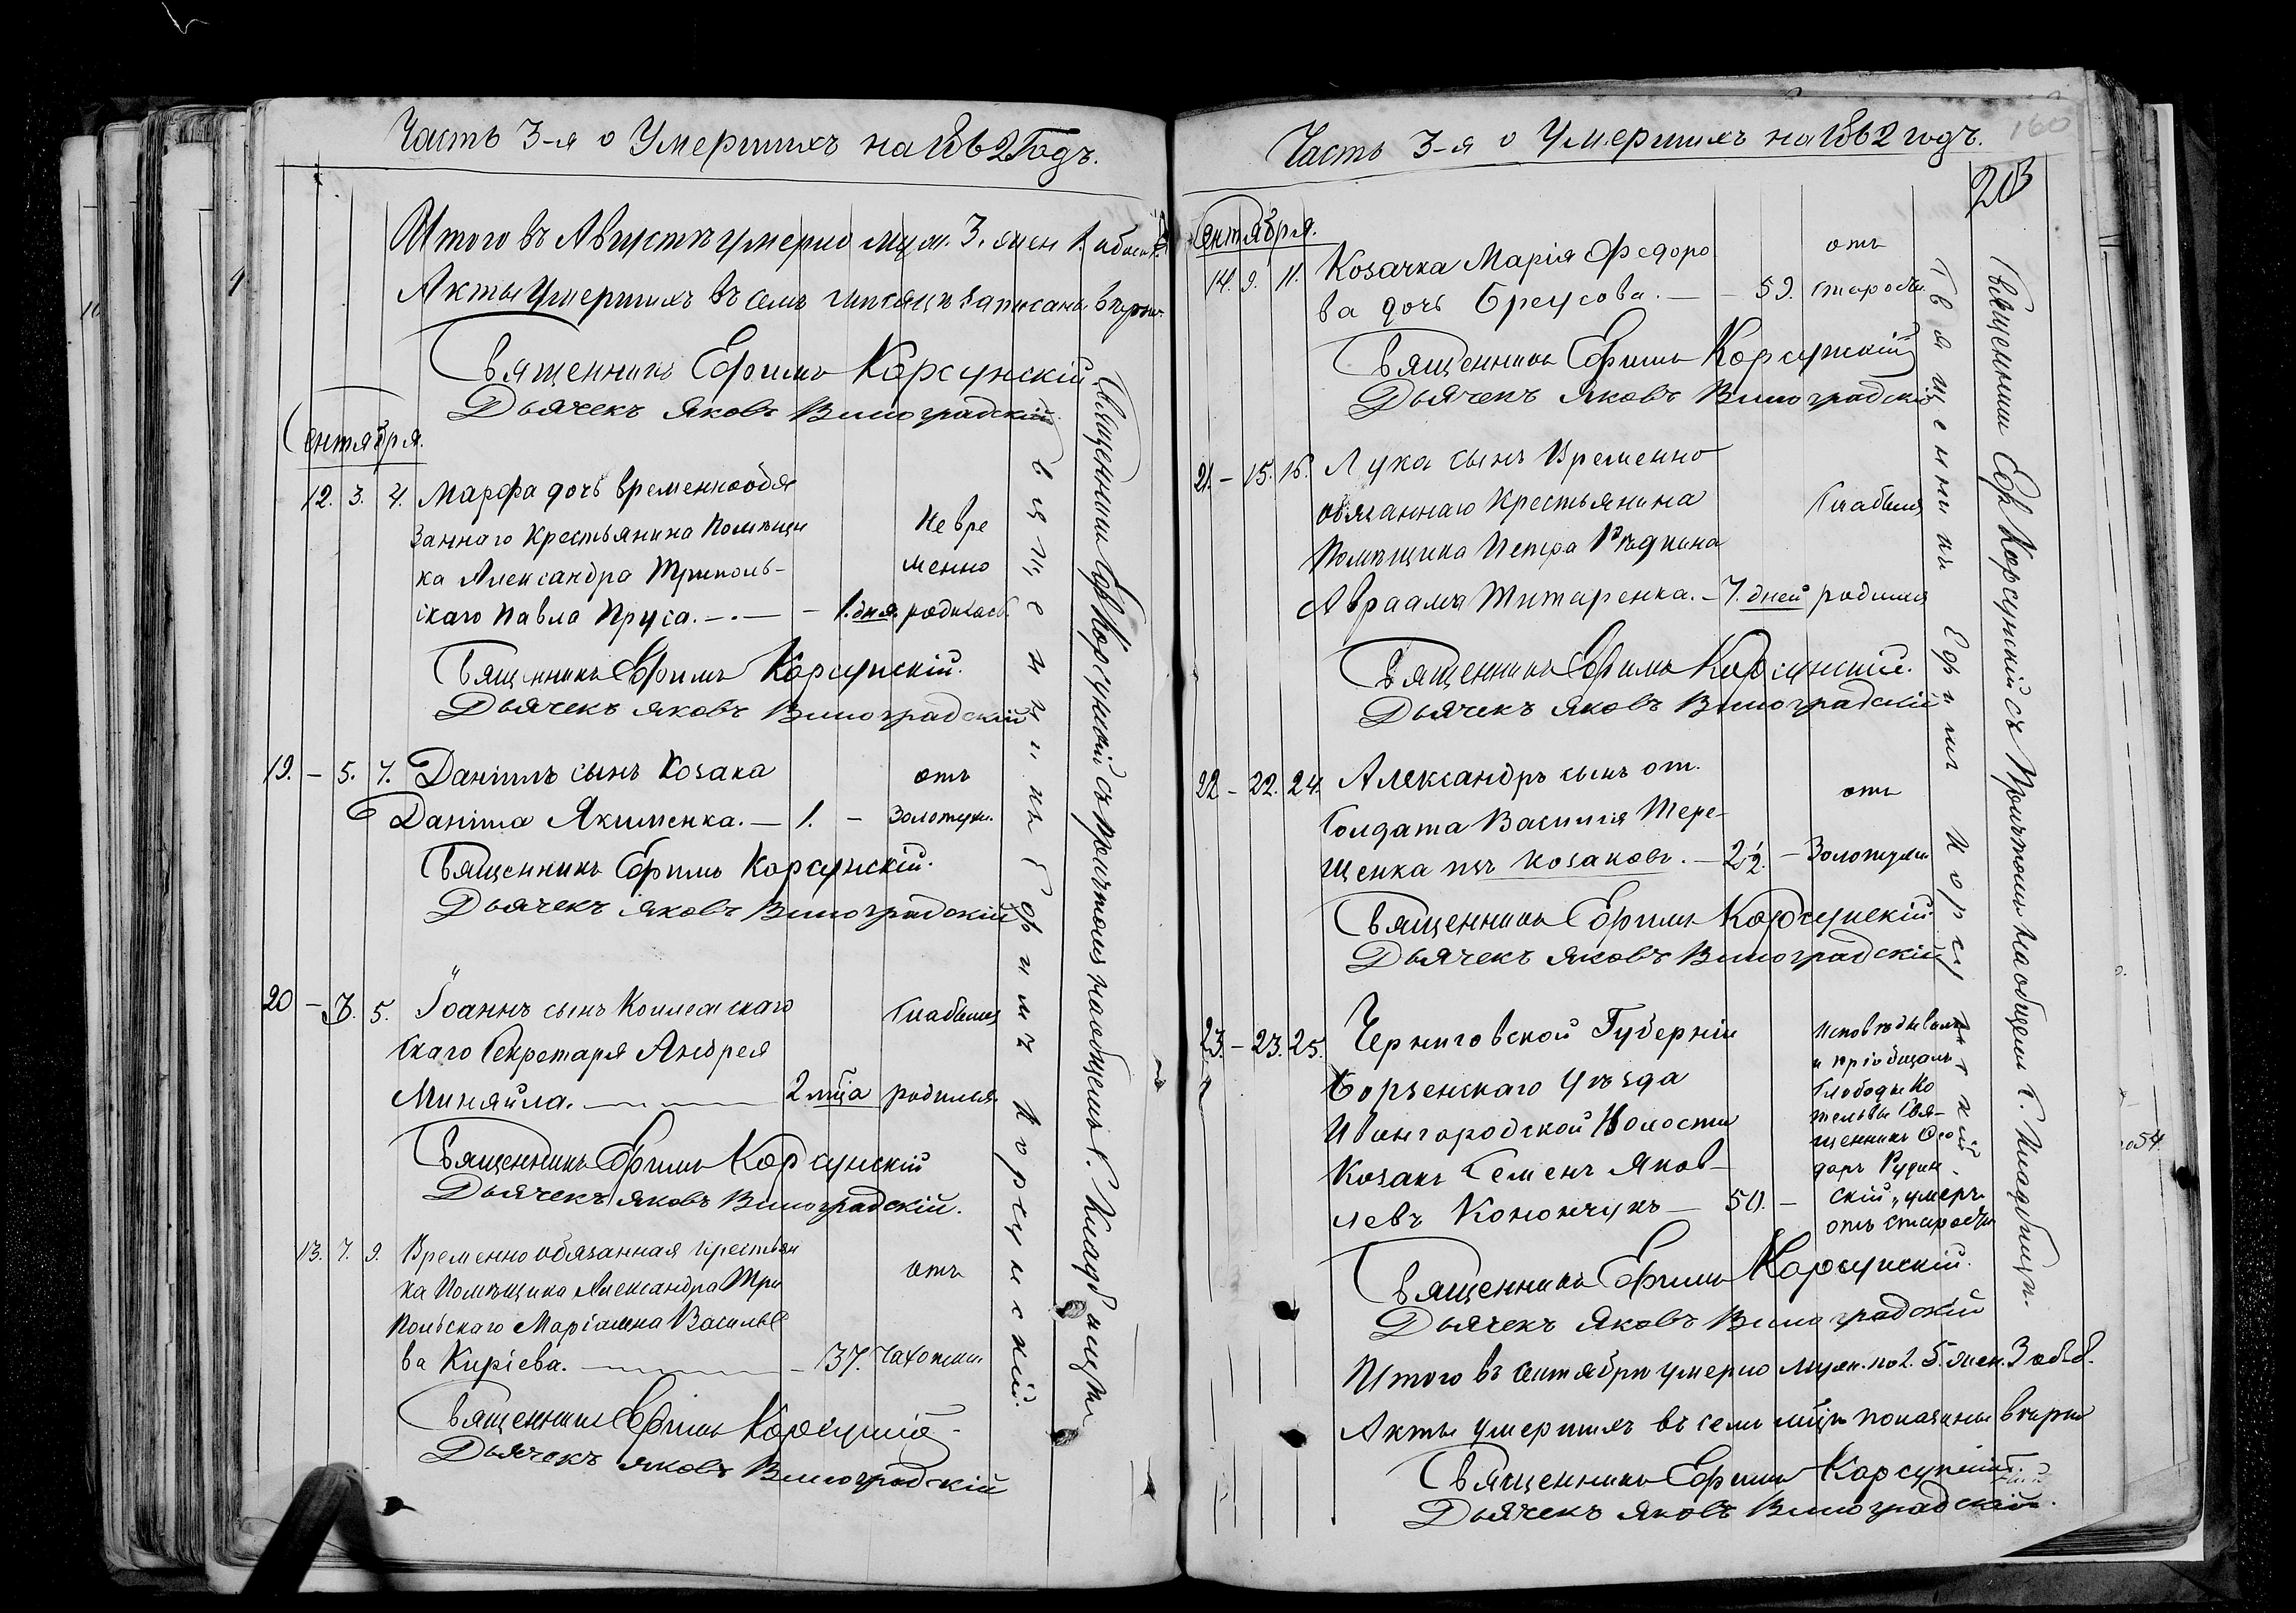 Часть 3-я о Умершихъ на 1862 Годъ.
Итого въ Августѣ умерло муж. 3. жен 1. обоего
Акты Умершихъ въ семъ мѣсяцѣ записаны вѣрно.
Священникъ Ефимъ Корсунскій
Дьячекъ Яковъ Виноградскій
Сентября.
12. 3. 4. Марфа дочь временнообя
заннаго Крестьянина Помѣщи
ка Александра Триполь-
скаго Павла Пруса. — 1. дня
Не вре
менно
родилась.
Священникъ Ефимъ Корсунскій.
Дьячекъ Яковъ Виноградскій
19. – 5. 7. Даніилъ сынъ Козака
Даніила Якименка. — 1. –
отъ
Золотухи.
Священникъ Ефимъ Корсунскій.
Дьячекъ Яковъ Виноградскій
20 – 3. 5. Іоаннъ сынъ Коллежскаго
скаго Секретаря Андрея
Миняйла. 2 мца
Слабымъ
родился
Священникъ Ефимъ Корсунскій
Дьячекъ Яковъ Виноградскій.
13. 7. 9. Временно обязанная крестьян
ка Помѣщика Александра Три
польскаго Маріамна Василье
ва Кирѣева. – 37.
отъ
Чахотки
Священникъ Ефимъ Корсунскій
Дьячекъ Яковъ Виноградскій
Священникъ Ефимъ Корсунскій
Священникъ Еф Корсунскій съ Причтомъ на общемъ К. Кладбищѣ
Часть 3-я о Умершихъ на 1862 годъ.
160
203
Сентября.
14. 9. 11. Козачка Марія Федоро
ва дочь Бреусова. — 59.
отъ
старости
Священникъ Ефимъ Корсунскій
Дьячекъ Яковъ Виноградскій
21. – 15. 16. Лука сынъ Временно
обязаннаго Крестьянина
Помѣщика Петра Рѣдкина
Авраама Титаренка. – 7. дней
Слабымъ
родился
Священникъ Ефимъ Корсунскій.
Дьячекъ Яковъ Виноградскій
22 – 22. 24. Александръ сынъ от.
Солдата Василія Тере-
щенка изъ козаковъ. — 2 1/2. –
отъ
Золотухи
Священникъ Ефимъ Корсунскій
Дьячекъ Яковъ Виноградскій
23. – 23. 25. Черниговской Губерніи
Борзенскаго Уѣзда
Ивангородской Волости
Козакъ Семенъ Яков-
левъ Конончукъ — 50. –
Исповѣдывалъ
и пріобщалъ
Слободы Ко
тельвы Свя-
щенникъ Фео
доръ Рудин
скій, умеръ
отъ старости
Священникъ Ефимъ Корсунскій.
Дьячекъ Яковъ Виноградскій
Итого въ Сентябрѣ умерло муж. пол. 5. жен. 3 об. 8.
Акты умершихъ въ семъ мцѣ показаны вѣрно
Священникъ Ефимъ Корсунскій
Дьячекъ Яковъ Виноградскій.
Священникъ Ефимъ Корсунскій
Священникъ Еф Корсунскій съ Причтомъ на общемъ К. Кладбищѣ.